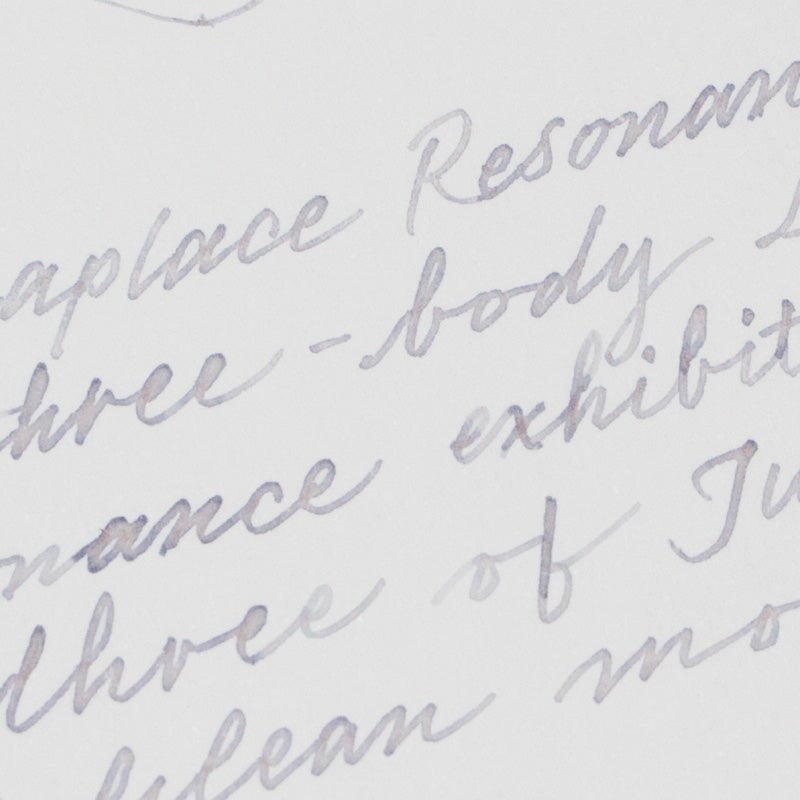 aplace Resonan
hree - body L
nance exhibit
three of Ju
ilean mo